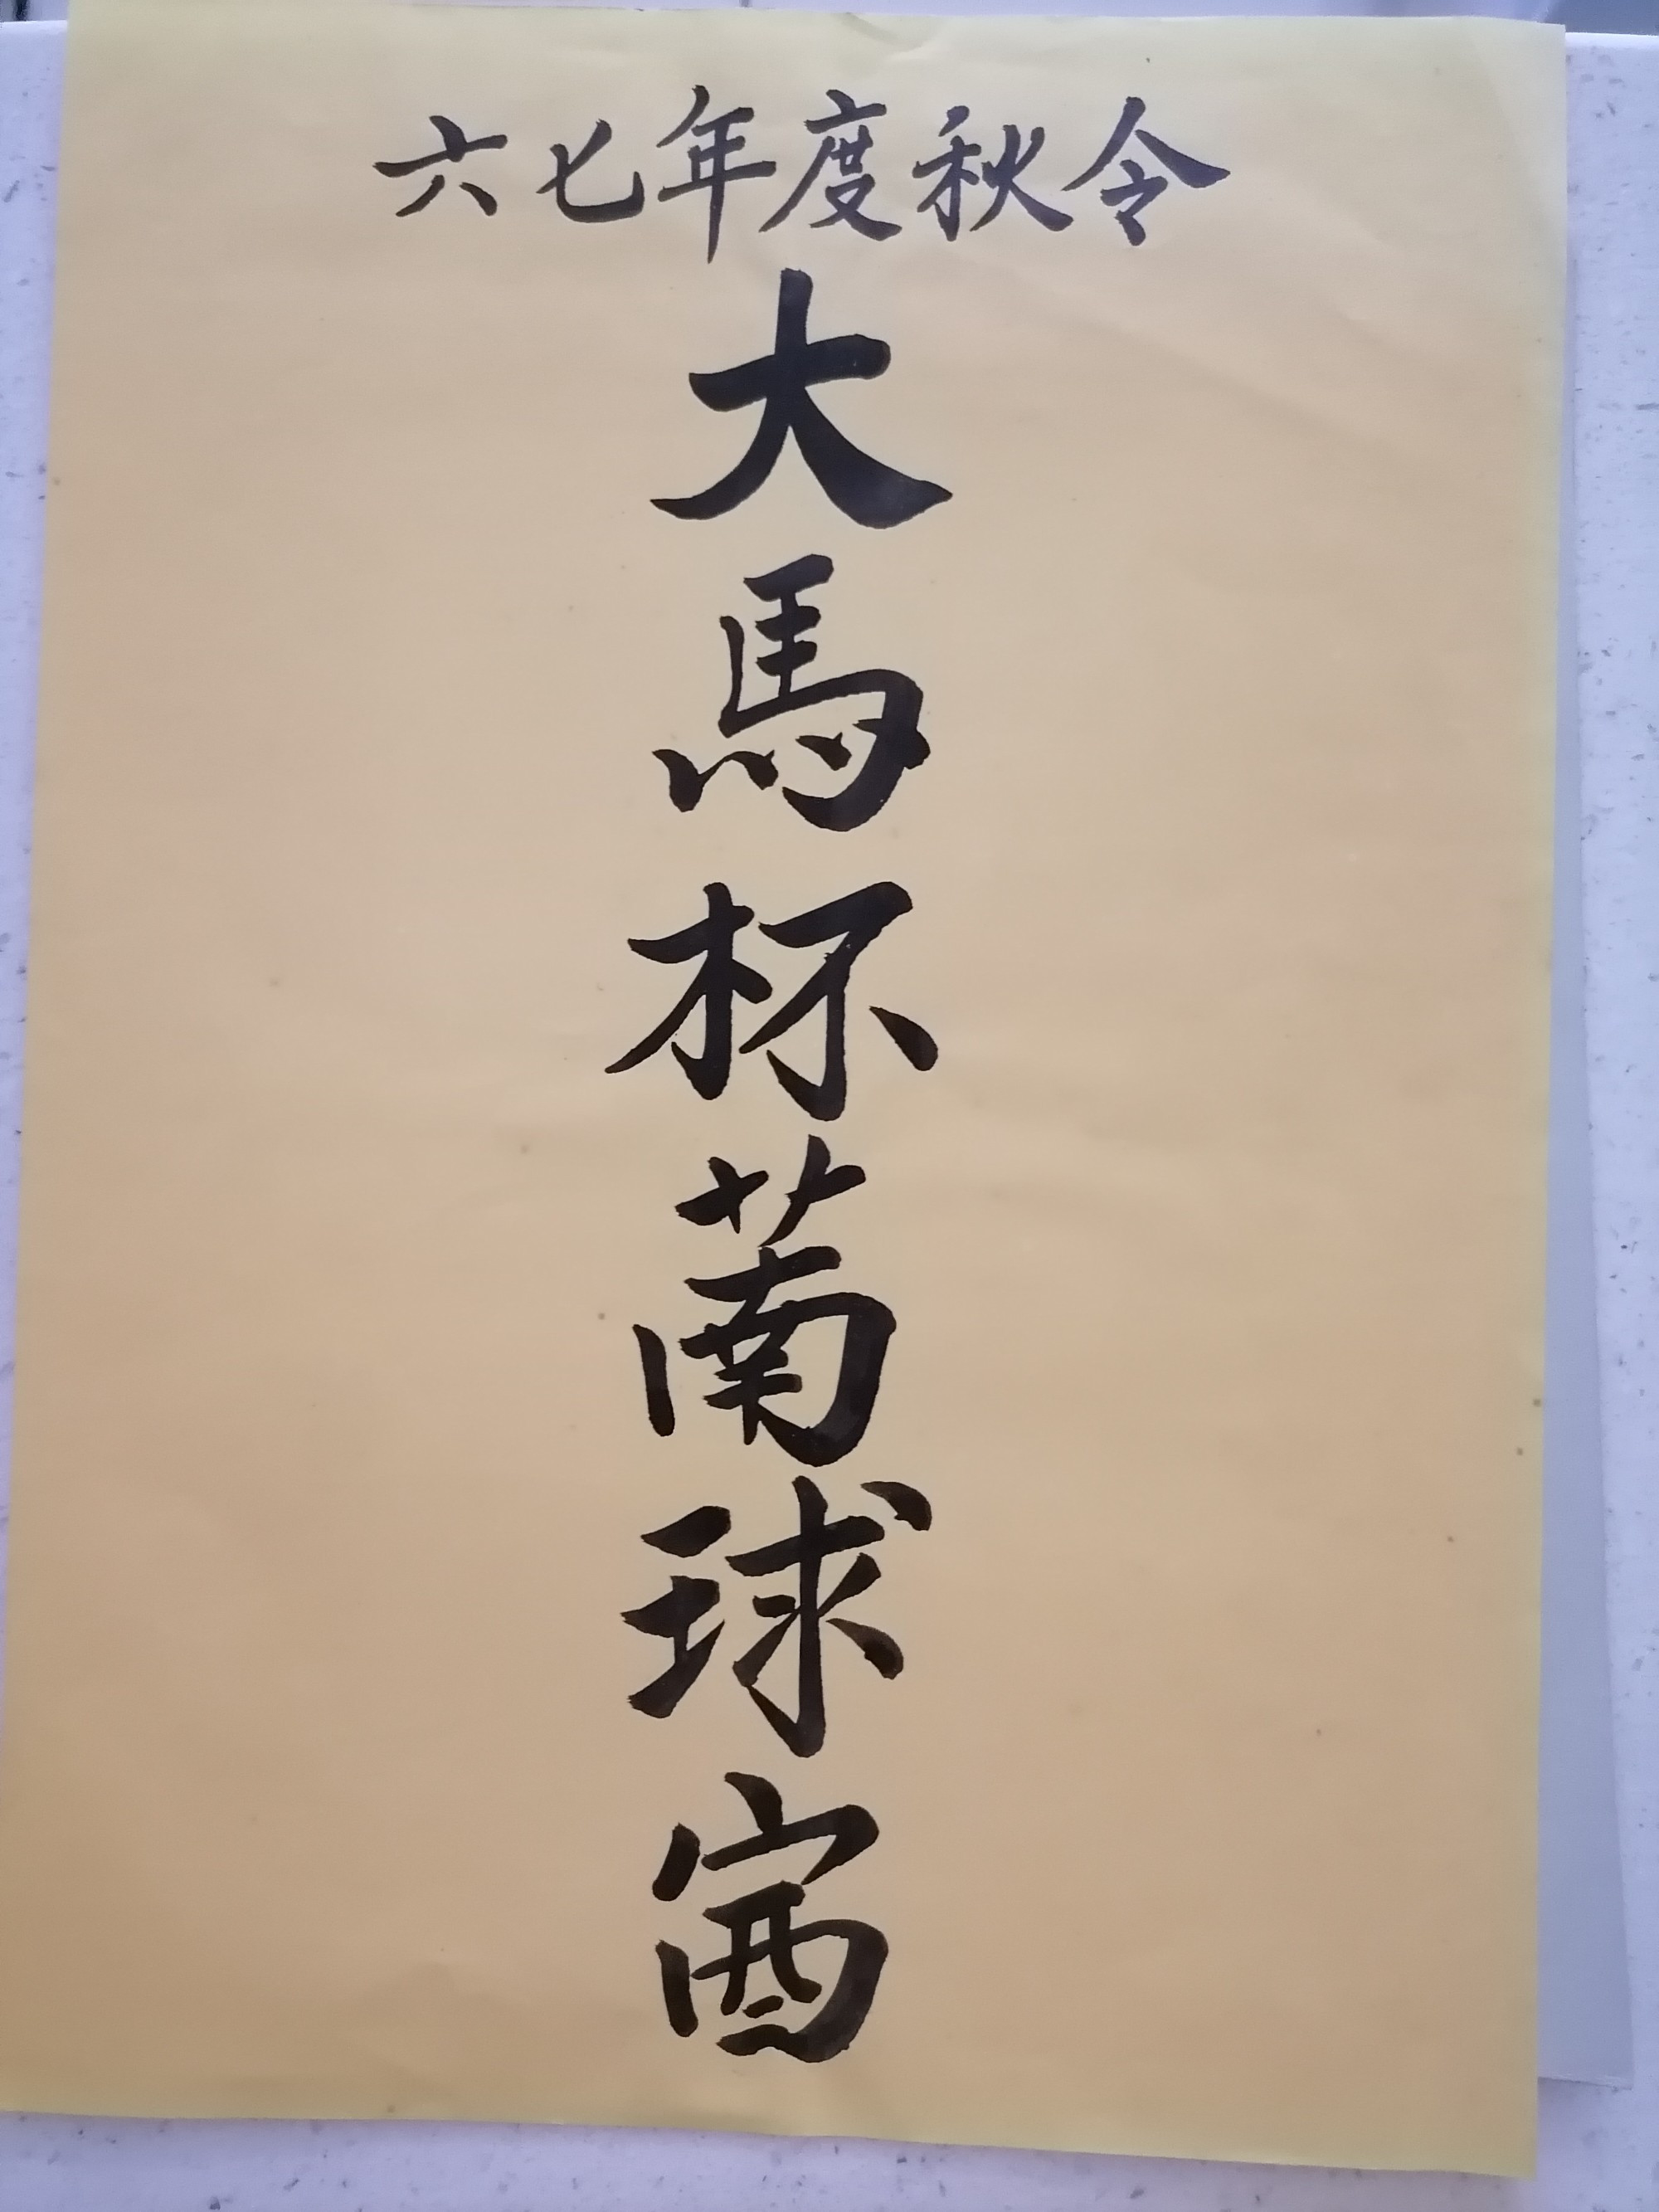 六七年度秋令
大馬杯萳球